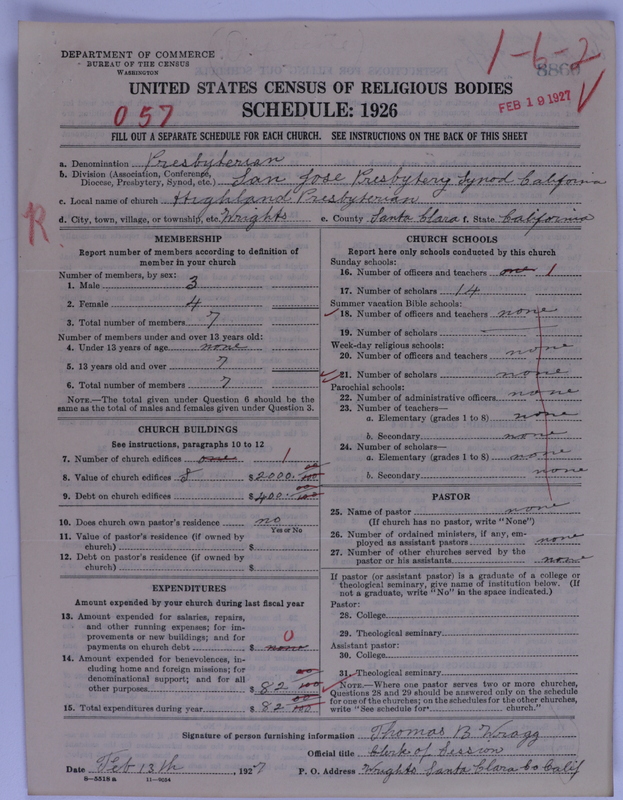 DEPARTMENT OF COMMERCE
BUREAU OF THE CENSUS
WASHINGTON
1-6-2
8869
UNITED STATES CENSUS OF RELIGIOUS BODIES
FEB 19 1927
057
SCHEDULE: 1926
FILL OUT A SEPARATE SCHEDULE FOR EACH CHURCH. SEE INSTRUCTIONS ON THE BACK OF THIS SHEET
a. Denomination Presbyterian
b. Division (Association, Conference, Diocese, Presbytery, Synod, etc.) San Jose Presbytery Synod California
c. Local name of church Highland Presbyterian
d. City, town, village, or township, etc. Wrights e. County Santa Clara f. State California
R
MEMBERSHIP
Report number of members according to definition of
member in your church
Number of members, by sex:
1. Male 3
2. Female 4
3. Total number of members 7
Number of members under and over 13 years old:
4. Under 13 years of age none
5. 13 years old and over 7
6. Total number of members 7
NOTE.—The total given under Question 6 should be
same as the total of males and females given under Question 3.
CHURCH BUILDINGS
See instructions, paragraphs 10 to 12
7. Number of church edifices one 1
8. Value of church edifices $ 2000.00
9. Debt on church edifices $ 400.00
10. Does church own pastor's residence no
Yes or No
11. Value of pastor's residence (if owned by
church) $
12. Debt on pastor's residence (if owned by
church) $
EXPENDITURES
Amount expended by your church during last fiscal year
13. Amount expended for salaries, repairs,
and other running expenses; for im-
provements or new buildings; and for
payments on church debt $ none 0
14. Amount expended for benevolences, in-
cluding home and foreign missions; for
denominational support; and for all
other purposes $ 82 00
15. Total expenditures during year $ 82 00
CHURCH SCHOOLS
Report here only schools conducted by this church
Sunday schools:
16. Number of officers and teachers one 1
17. Number of scholars 14
Summer vacation Bible schools:
18. Number of officers and teachers none
19. Number of scholars
Week-day religious schools:
20. Number of officers and teachers none
21. Number of scholars none
Parochial schools:
22. Number of administrative officers none
23. Number of teachers—
a. Elementary (grades 1 to 8) none
b. Secondary none
24. Number of scholars—
a. Elementary (grades 1 to 8) none
b. Secondary none
PASTOR
25. Name of pastor none
(If church has no pastor, write "None")
26. Number of ordained ministers, if any, em-
ployed as assistant pastors none
27. Number of other churches served by the
pastor or his assistants none
If pastor (or assistant pastor) is a graduate of a college or
theological seminary, give name of institution below. (If
not a graduate, write "No" in the space indicated.)
Pastor:
28. College
29. Theological seminary
Assistant pastor:
30. College
31. Theological seminary
NOTE.—Where one pastor serves two or more churches,
Questions 28 and 29 should be answered only on the schedule
for one of the churches; on the schedules for the other churches,
write "See schedule for church."
Signature of person furnishing information Thomas B. Wragg
Official title Clerk of Session
Date Feb 13th, 1927 P. O. Address Wrights Santa Clara Co Calif
8—5518a 11—9024